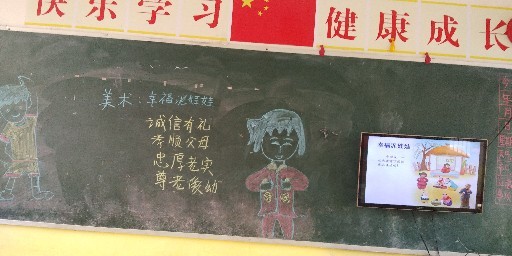 快乐学习 健康成长
美术：幸福泥娃娃
诚信有礼
孝顺父母
忠厚老实
尊老爱幼
幸福泥娃娃